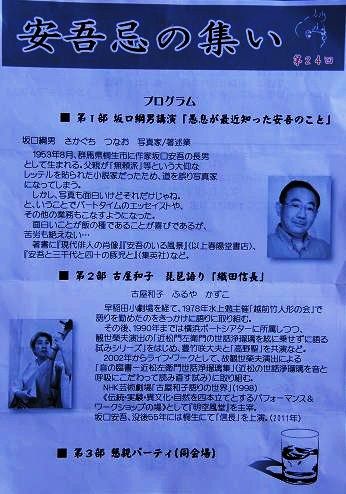 安吾忌の集い
第24回
プログラム
■ 第1部 坂口綱男講演『愚息が最近知った安吾のこと』
坂口綱男 さかぐち つなお 写真家/著述業
1953年8月、群馬県桐生市に作家坂口安吾の長男
として生まれる。父親が「無頼派」等という大仰な
レッテルを貼られた小説家だったため、道を誤り写真家
になってしまう。
しかし、写真も面白いけどそれだけじゃね。
と、いうことでパートタイムのエッセイストや、
その他の業務もこなすようになった。
面白いことが飯の種であることが喜びであるが、
苦労も絶えない…
著書に『現代俳人の肖像』『安吾のいる風景』(以上春陽堂書店)、
『安吾と三千代と四十の豚児と』(集英社)など。
■ 第2部 古屋和子 琵琶語り「織田信長」
古屋和子 ふるや かずこ
早稲田小劇場を経て、1978年水上勉主催「越前竹人形の会」で
語りを勤めたのをきっかけに語りに取り組む。
その後、1990年までは横浜ボートシアターに所属しつつ、
観世榮夫演出の「近松門左衛門の世話浄瑠璃を絃に乗せずに語る
試みシリーズ」をはじめ、豊竹咲大夫と「高野聖」を共演など。
2002年からライフ・ワークとして、故観世榮夫演出による
「音の臨書―近松左衛門世話浄瑠璃集」(近松の世話浄瑠璃を音と
呼吸にこだわって読み直す試み)に取り組む。
NHK芸術劇場「古屋和子語りの世界」(1998)
《伝統・実験・異文化・自然を四本立てとするパフォーマンス&
ワークショップの場》として『明空風堂』を主宰。
坂口安吾、没後55年には桐生にて「信長」を上演。(2011年)
■ 第3部 懇親パーティ(同会場)